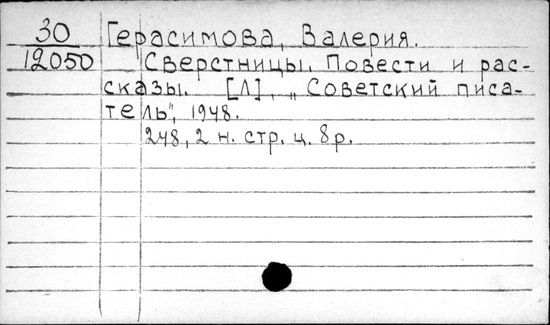 30 Герасимова, Валерия.
12050 Сверстницы. Повести и рас-
сказы. [Л], „Советский писа-
тель", 1948.
248, 2 н. стр. ц. 8р.